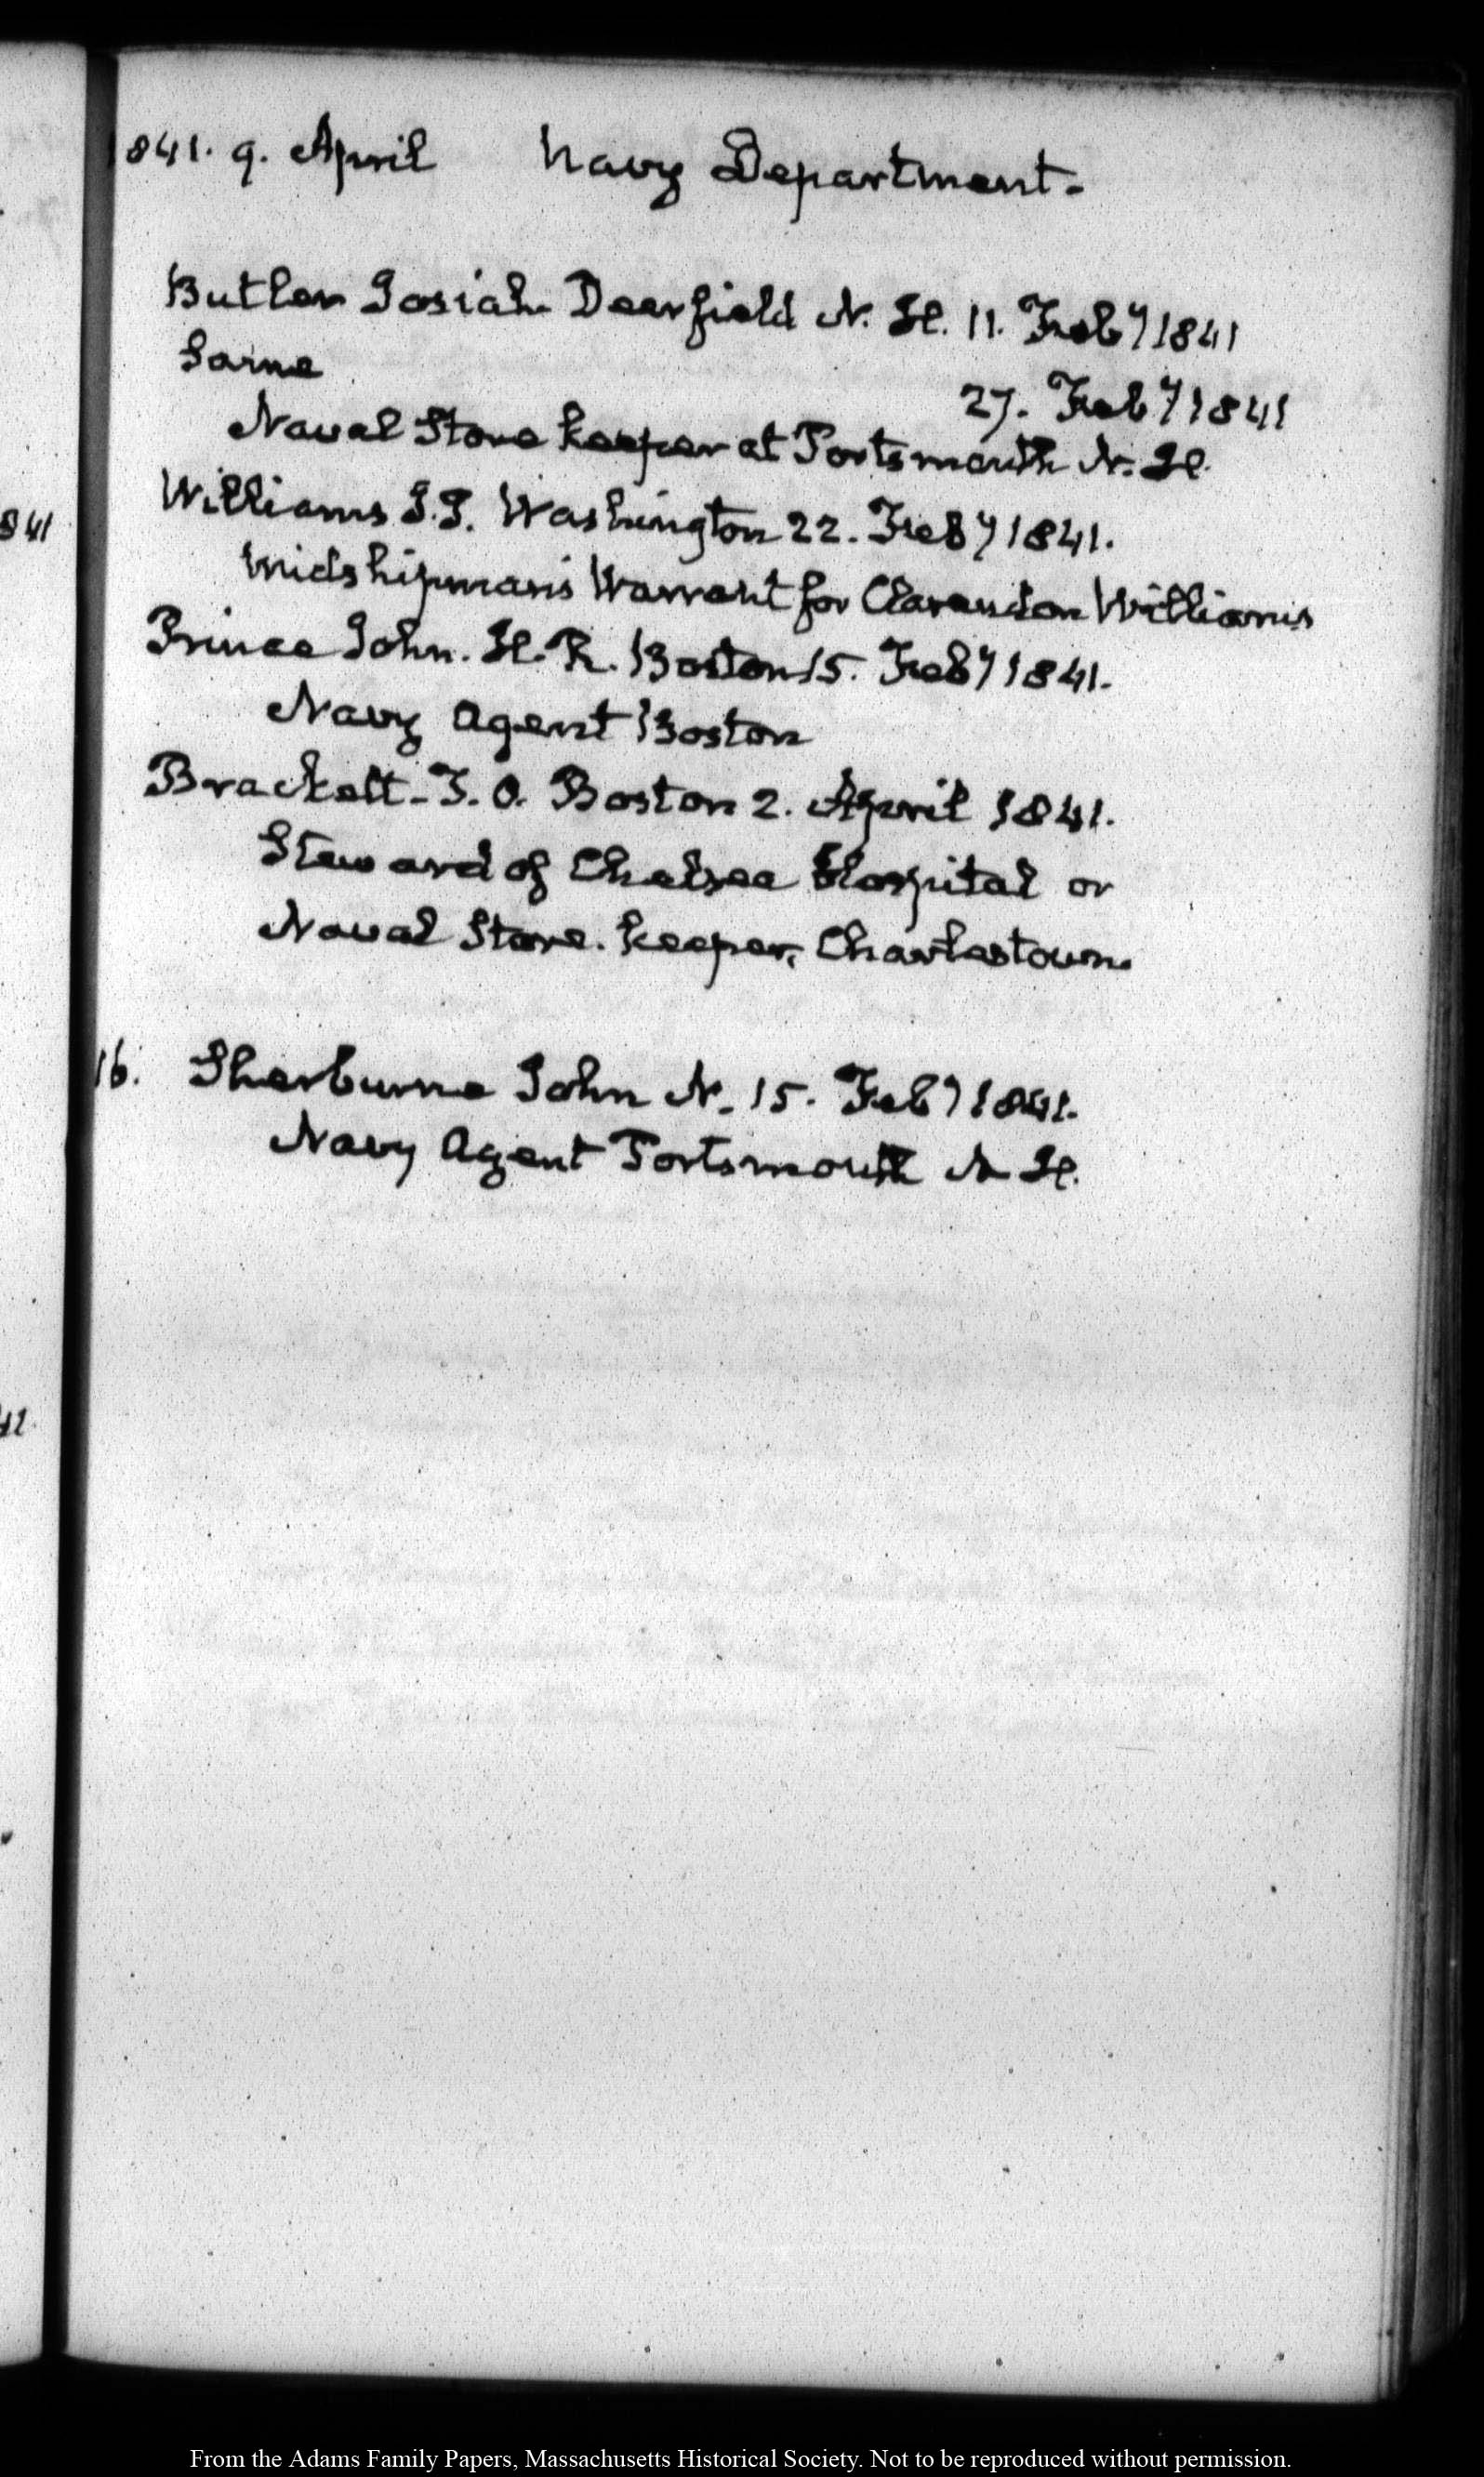 1841. 9. April Navy Department.
Butler Josiah Deerfield N. H. 11. Feby 1841
Same 27. Feby 1841
Naval Store keeper at Portsmouth N. H.
Williams J. J. Washington 22. Feby 1841.
Midshipman's Warrant for Clarendon Williams
Prince John. H. R. Boston 15. Feby 1841.
Navy Agent Boston
Brackett - J. O. Boston 2. April 1841.
Steward of Chelsea Hospital or
Naval Store. keeper, Charlestown.
16. Sherburne John N. 15. Feby 1841.
Navy Agent Portsmouth N H.
841
41
From the Adams Family Papers, Massachusetts Historical Society. Not to be reproduced without permission.